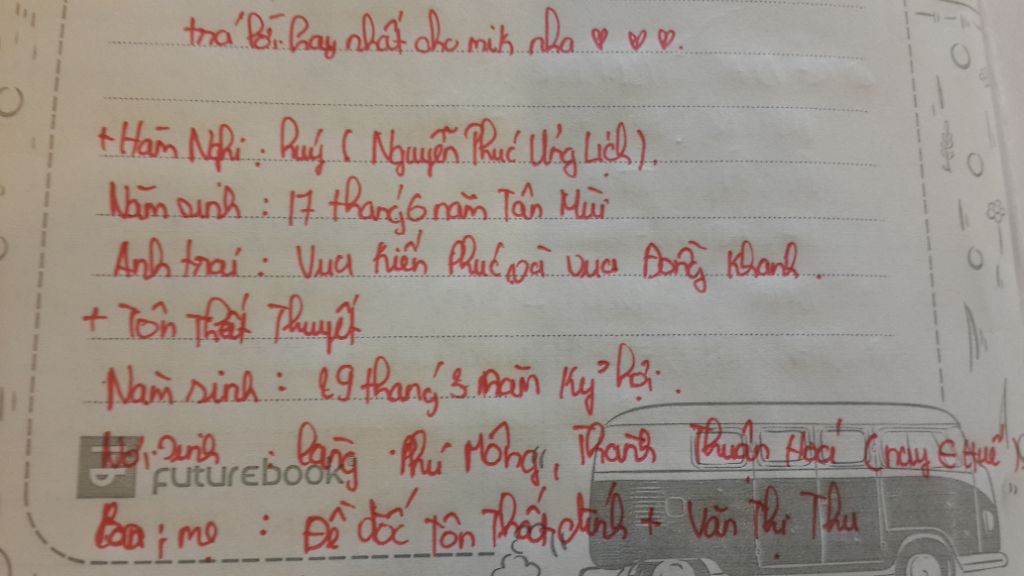 trả lời hay nhất cho mik nha ♡ ♡ ♡.
+ Hàm Nghi : húy ( Nguyễn Phúc Ưng Lịch ).
Năm sinh : 17 tháng 6 năm Tân Mùi
Anh trai : Vua Kiến Phúc và vua Đồng Khanh .
+ Tôn Thất Thuyết
Năm sinh : 29 tháng 3 năm Kỷ Hợi .
Nơi sinh : làng Phú Mộng, Thành Thuận Hoá (nay ở Huế)
FUTUREBOOK
mẹ : Đề đốc Tôn Thất Đính + Văn Thị Thu